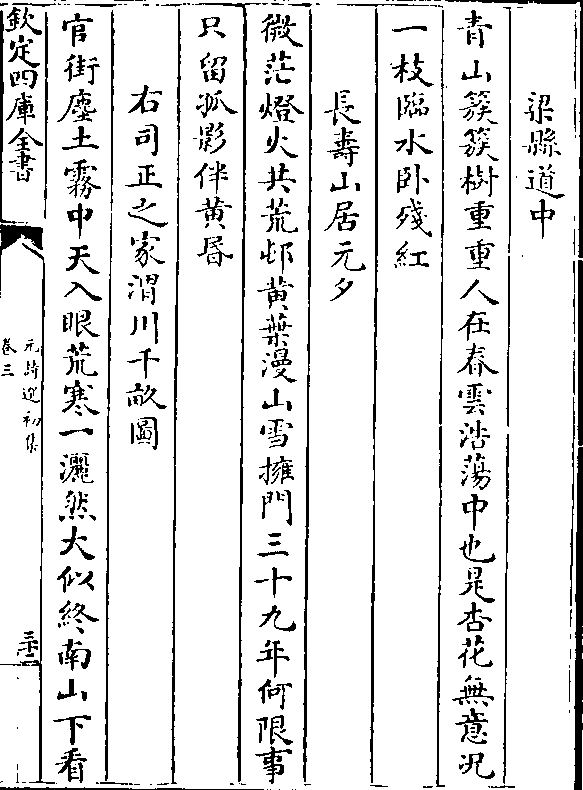 梁縣道中
青山簇簇樹重重人在春雲浩蕩中也是杏花無意况
一枝臨水卧殘紅
長壽山居元夕
微茫燈火共荒邨黄葉漫山雪擁門三十九年何限事
只留孤影伴黄昏
右司正之家渭川千畝圖
官街塵土霧中天入眼荒寒一灑然大似終南山下看
欽定四庫全書
元詩選初集
卷三